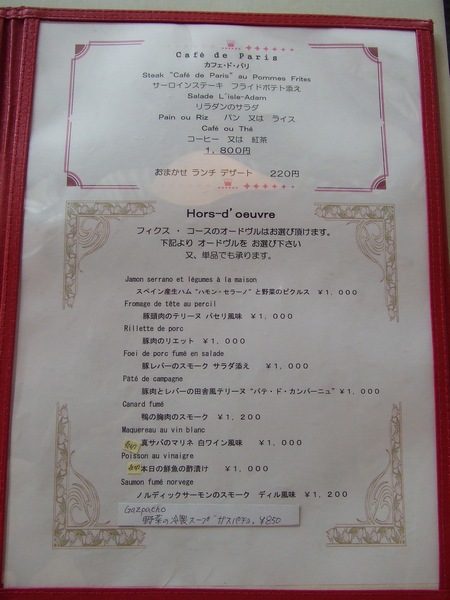 Café de Paris
カフェ・ド・パリ
Steak "Café de Paris" au Pommes Frites
サーロインステーキ フライドポテト添え
Salade L'isle-Adam
リラダンのサラダ
Pain ou Riz パン 又は ライス
Café ou Thé
コーヒー 又は 紅茶
１，８００円
おまかせ ランチ デザート ２２０円
Hors-d'oeuvre
フィクス ・ コースのオードヴルはお選び頂けます。
下記より オードヴルを お選び下さい
又、単品でも承ります。
Jamon serrano et légumes à la maison
スペイン産生ハム "ハモン・セラーノ"と野菜のピクルス ￥１，０００
Fromage de tête au percil
豚頭肉のテリーヌ パセリ風味 ￥１，０００
Rillette de porc
豚肉のリエット ￥１，０００
Foei de porc fumé en salade
豚レバーのスモーク サラダ添え ￥１，０００
Pâté de campagne
豚肉とレバーの田舎風テリーヌ "パテ・ド・カンパーニュ" ￥１，０００
Canard fumé
鴨の胸肉のスモーク ￥１，２００
Maquereau au vin blanc
真サバのマリネ 白ワイン風味 ￥１，０００
Poisson au vinaigre
本日の鮮魚の酢漬け ￥１，０００
Saumon fumé norvege
ノルディックサーモンのスモーク ディル風味 ￥１，２００
Gazpacho
野菜の冷製スープ ガスパチョ. ¥850